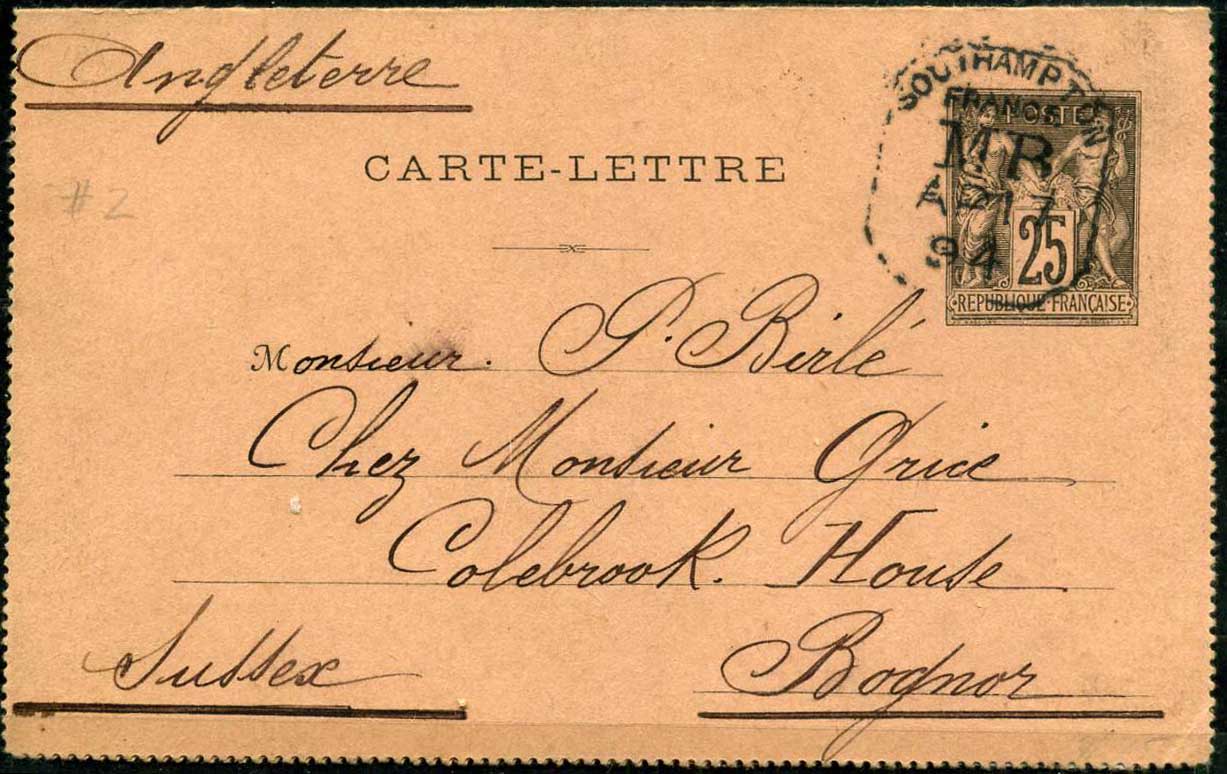 Angleterre
CARTE-LETTRE
#2
SOUTHAMPTON
FRANCE
MB
AP 17
94
POSTE
25
REPUBLIQUE FRANÇAISE
Monsieur. P. Birlé
Chez Monsieur Grice
Colebrook. House
Sussex
Bognor